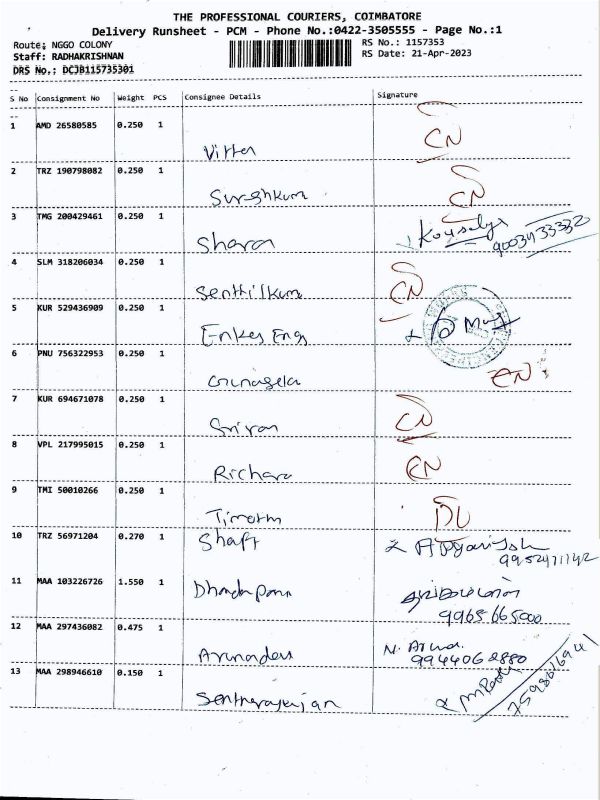 THE PROFESSIONAL COURIERS, COIMBATORE
Delivery Runsheet - PCM - Phone No.:0422-3505555 - Page No.:1
Route: NGGO COLONY
RS No.: 1157353
Staff: RADHAKRISHNAN
RS Date: 21-Apr-2023
DRS No.: DCJB115735301
S No Consignment No Weight PCS Consignee Details Signature
1 AMD 26580585 0.250 1
CN
2 TRZ 190798082 0.250 1
CN
3 TMG 200429461 0.250 1
Kousalya
Sharon
4 SLM 318206034 0.250 1
Senthilkum CN
5 KUR 529436909 0.250 1
Enkes Eng
6 PNU 756322953 0.250 1
Gunasela CN
7 KUR 694671078 0.250 1
Sriram CN
8 VPL 217995015 0.250 1
Richard CN
9 TMI 50010266 0.250 1
DL
10 TRZ 56971204 0.270 1 Shaft
11 MAA 103226726 1.550 1 Dhandapani
9965665000
12 MAA 297436082 0.475 1
N. Aruna.
Arunadevi 9944062880
13 MAA 298946610 0.150 1